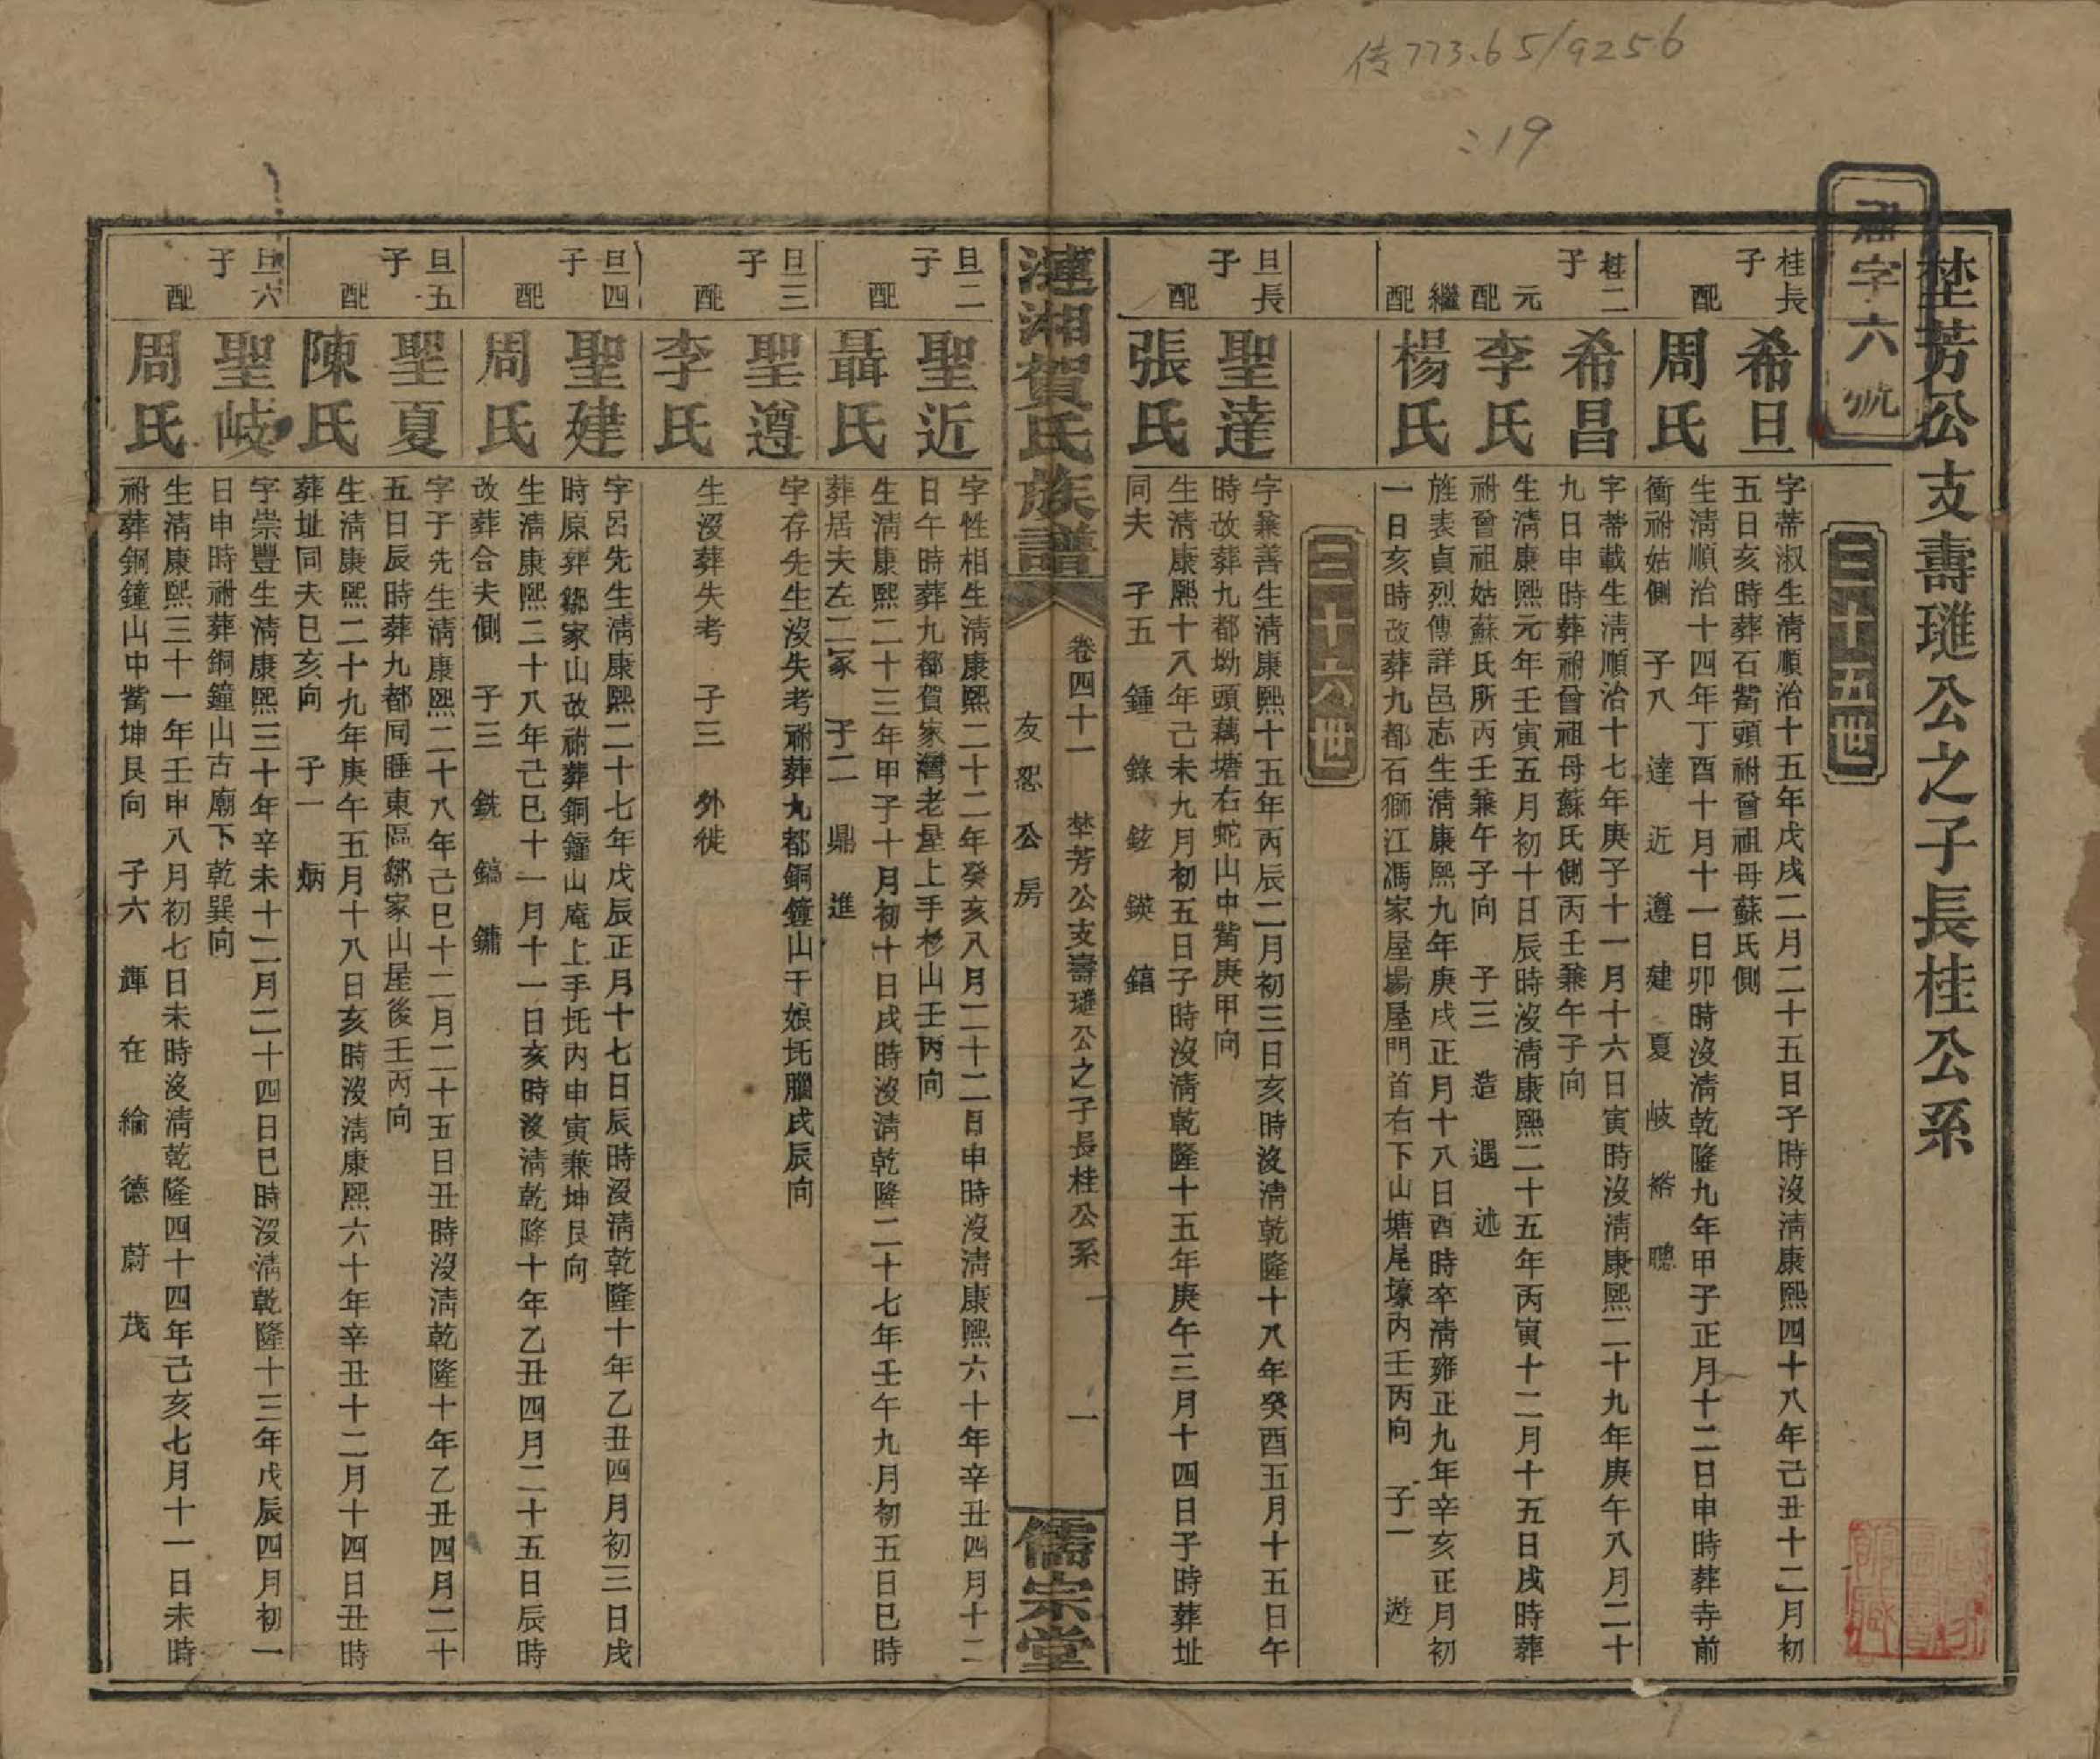 传773.65/9256
:19
字六號
埜芳公支壽璡公之子長桂公系
三十五世
桂長子 希旦 字蒂淑生淸順治十五年戊戌二月二十五日子時沒淸康熙四十八年己丑十二月初
五日亥時葬石觜頭祔曾祖母蘇氏側
配 周氏 生淸順治十四年丁酉十月十一日卯時沒淸乾隆九年甲子正月十二日申時葬寺前
衝祔姑側 子八 達 近 遵 建 夏 岐 裕 聰
桂二子 希昌 字蒂載生淸順治十七年庚子十一月十六日寅時沒淸康熙二十九年庚午八月二十
九日申時葬祔曾祖母蘇氏側丙壬兼午子向
元配 李氏 生淸康熙元年壬寅五月初十日辰時沒淸康熙二十五年丙寅十二月十五日戌時葬
祔曾祖姑蘇氏所丙壬兼午子向 子三 造 遇 述
繼配 楊氏 旌表貞烈傳詳邑志生淸康熙九年庚戌正月十八日酉時卒淸雍正九年辛亥正月初
一日亥時改葬九都石獅江馮家屋場屋門首右下山塘尾壕內壬丙向 子一 遊
三十六世
旦長子 聖達 字兼善生淸康熙十五年丙辰二月初三日亥時沒淸乾隆十八年癸酉五月十五日午
時故葬九都坳頭藕塘右蛇山中觜庚甲向
配 張氏 生淸康熙十八年己未九月初五日子時沒淸乾隆十五年庚午三月十四日子時葬址
同夫 子五 鍾 錄 鉉 鍈 鎬
漣湘賀氏族譜 卷四十一 埜芳公支壽璡公之子長桂公系 一
友恕公房
儒宗堂
旦二子 聖近 字性相生淸康熙二十二年癸亥八月二十二日申時沒淸康熙六十年辛丑四月十二
日午時葬九都賀家灣老屋上手杉山壬丙向
配 聶氏 生淸康熙二十三年甲子十月初十日戌時沒淸乾隆二十七年壬午九月初五日巳時
葬居夫左二冢 子二 鼎 進
旦三子 聖遵 字存先生沒失考祔葬九都銅鐘山干娘圫腦戌辰向
配 李氏 生沒葬失考 子三 外徙
旦四子 聖建 字呂先生淸康熙二十七年戊辰正月十七日辰時沒淸乾隆十年乙丑四月初三日戌
時原葬鄒家山改祔葬銅鐘山庵上手圫內申寅兼坤艮向
配 周氏 生淸康熙二十八年己巳十一月十一日亥時沒淸乾隆十年乙丑四月二十五日辰時
改葬合夫側 子三 銑 鎬 鏞
旦五子 聖夏 字子先生淸康熙二十八年己巳十二月二十五日丑時沒淸乾隆十年乙丑四月二十
五日辰時葬九都同睡東區鄒家山屋後壬丙向
配 陳氏 生淸康熙二十九年庚午五月十八日亥時沒淸康熙六十年辛丑十二月十四日丑時
葬址同夫巳亥向 子一 炳
旦六子 聖岐 字崇豐生淸康熙三十年辛未十二月二十四日巳時沒淸乾隆十三年戊辰四月初一
日申時祔葬銅鐘山古廟下乾巽向
配 周氏 生淸康熙三十一年壬申八月初七日未時沒淸乾隆四十四年己亥七月十一日未時
祔葬銅鐘山中觜坤艮向 子六 輝 在 綸 德 蔚 茂